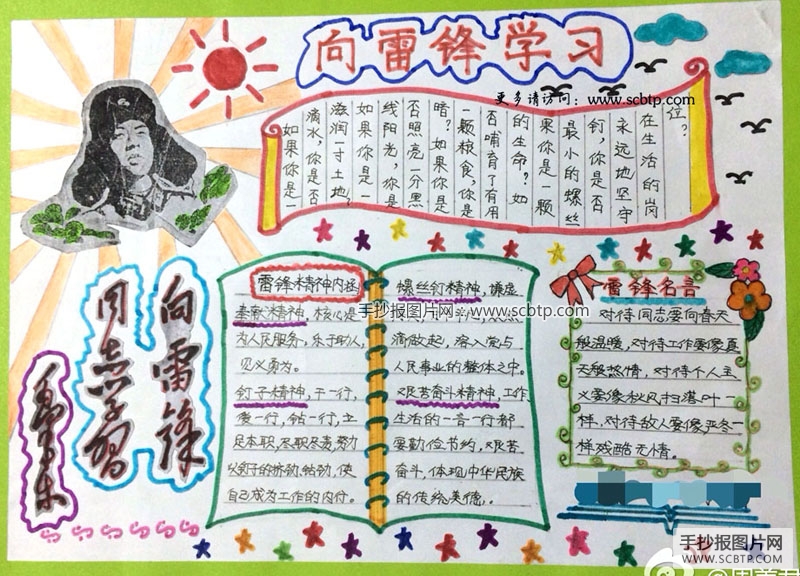 向雷锋学习
更多请访问：www.scbtp.com
如果你是一
滴水，你是否
滋润一寸土地？
如果你是一
线阳光，你是
否照亮一分黑
暗？如果你是
一颗粮食，你是
否哺育了有用
的生命？如
果你是一颗
最小的螺丝
钉，你是否
永远地坚守
在生活的岗
位？
向雷锋
同志学习
毛泽东
雷锋精神内涵
奉献精神，核心是
为人民服务，乐于助人，
见义勇为。
钉子精神，干一行，
爱一行，钻一行，立
足本职，尽职尽责，努力
以钉子的挤劲、钻劲，使
自己成为工作的内行。
螺丝钉精神，谦虚
滴做起，溶入党与
人民事业的整体之中。
艰苦奋斗精神，工作
生活的一言一行都
要勤俭节约，艰苦
奋斗，体现中华民族
的传统美德。
手抄报图片网 www.scbtp.com
雷锋名言
对待同志要向春天
般温暖，对待工作要像夏
天般热情，对待个人主
义要像秋风扫落叶一
样，对待敌人要像严冬一
样残酷无情。
手抄报图片网
WWW.SCBTP.COM